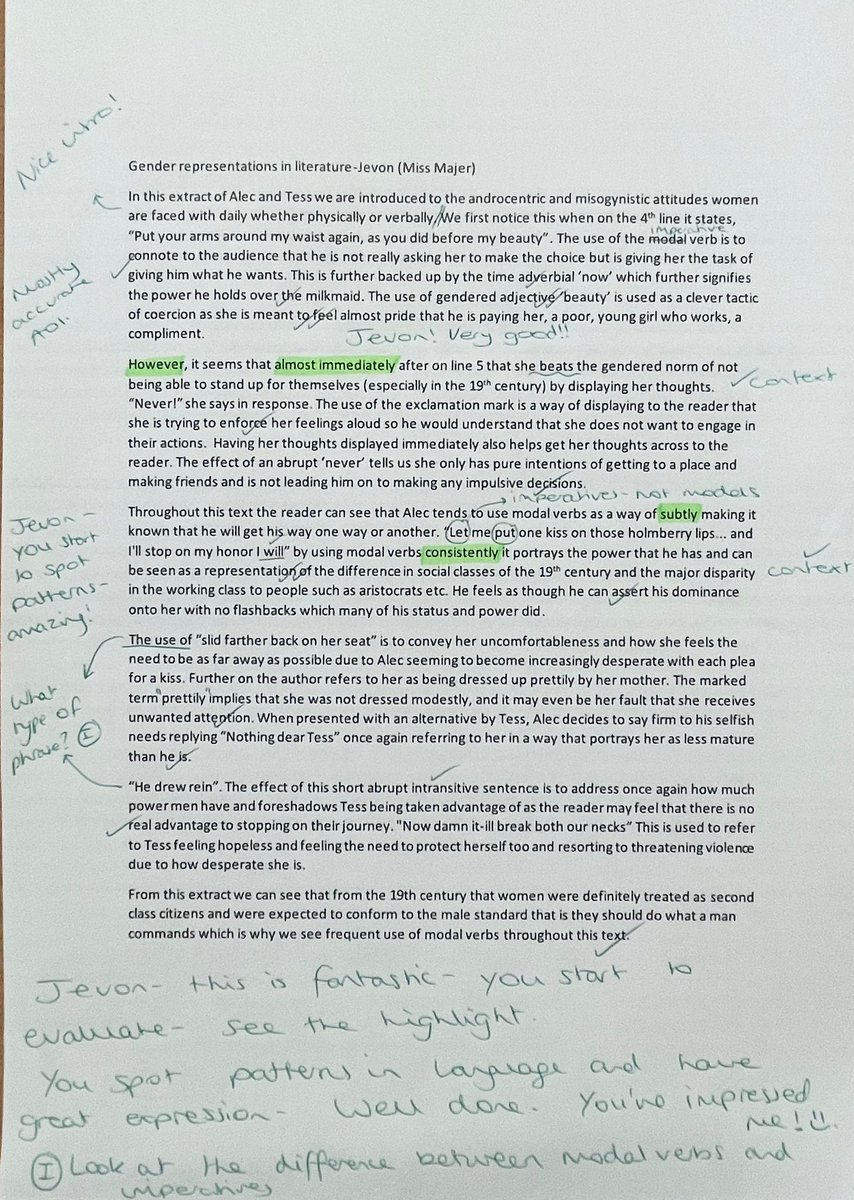 Nice intro!
Gender representations in literature-Jevon (Miss Majer)
In this extract of Alec and Tess we are introduced to the androcentric and misogynistic attitudes women
are faced with daily whether physically or verbally//We first notice this when on the 4th line it states,
imperative
“Put your arms around my waist again, as you did before my beauty”. The use of the modal verb is to
connote to the audience that he is not really asking her to make the choice but is giving her the task of
giving him what he wants. This is further backed up by the time adverbial ‘now’ which further signifies
the power he holds over the milkmaid. The use of gendered adjective ‘beauty’ is used as a clever tactic
of coercion as she is meant to feel almost pride that he is paying her, a poor, young girl who works, a
compliment.
Mostly
accurate
AO1.
Jevon! Very good!!
However, it seems that almost immediately after on line 5 that she beats the gendered norm of not
being able to stand up for themselves (especially in the 19th century) by displaying her thoughts.
context
“Never!” she says in response. The use of the exclamation mark is a way of displaying to the reader that
she is trying to enforce her feelings aloud so he would understand that she does not want to engage in
their actions.  Having her thoughts displayed immediately also helps get her thoughts across to the
reader. The effect of an abrupt ‘never’ tells us she only has pure intentions of getting to a place and
making friends and is not leading him on to making any impulsive decisions.
imperatives - not modals
Throughout this text the reader can see that Alec tends to use modal verbs as a way of subtly making it
known that he will get his way one way or another. “Let me put one kiss on those holmberry lips... and
I’ll stop on my honor I will” by using modal verbs consistently it portrays the power that he has and can
be seen as a representation of the difference in social classes of the 19th century and the major disparity
context
in the working class to people such as aristocrats etc. He feels as though he can assert his dominance
onto her with no flashbacks which many of his status and power did.
Jevon -
you start
to spot
patterns -
amazing!
The use of “slid farther back on her seat” is to convey her uncomfortableness and how she feels the
need to be as far away as possible due to Alec seeming to become increasingly desperate with each plea
for a kiss. Further on the author refers to her as being dressed up prettily by her mother. The marked
term "prettily" implies that she was not dressed modestly, and it may even be her fault that she receives
unwanted attention. When presented with an alternative by Tess, Alec decides to say firm to his selfish
needs replying “Nothing dear Tess” once again referring to her in a way that portrays her as less mature
than he is.
What
type of
phrase? I
“He drew rein”. The effect of this short abrupt intransitive sentence is to address once again how much
power men have and foreshadows Tess being taken advantage of as the reader may feel that there is no
real advantage to stopping on their journey. "Now damn it-ill break both our necks” This is used to refer
to Tess feeling hopeless and feeling the need to protect herself too and resorting to threatening violence
due to how desperate she is.
From this extract we can see that from the 19th century that women were definitely treated as second
class citizens and were expected to conform to the male standard that is they should do what a man
commands which is why we see frequent use of modal verbs throughout this text.
Jevon - this is fantastic - you start to
evaluate - see the highlight.
You spot patterns in language and have
great expression - Well done. You've impressed
me!
I Look at the difference between modal verbs and
imperatives